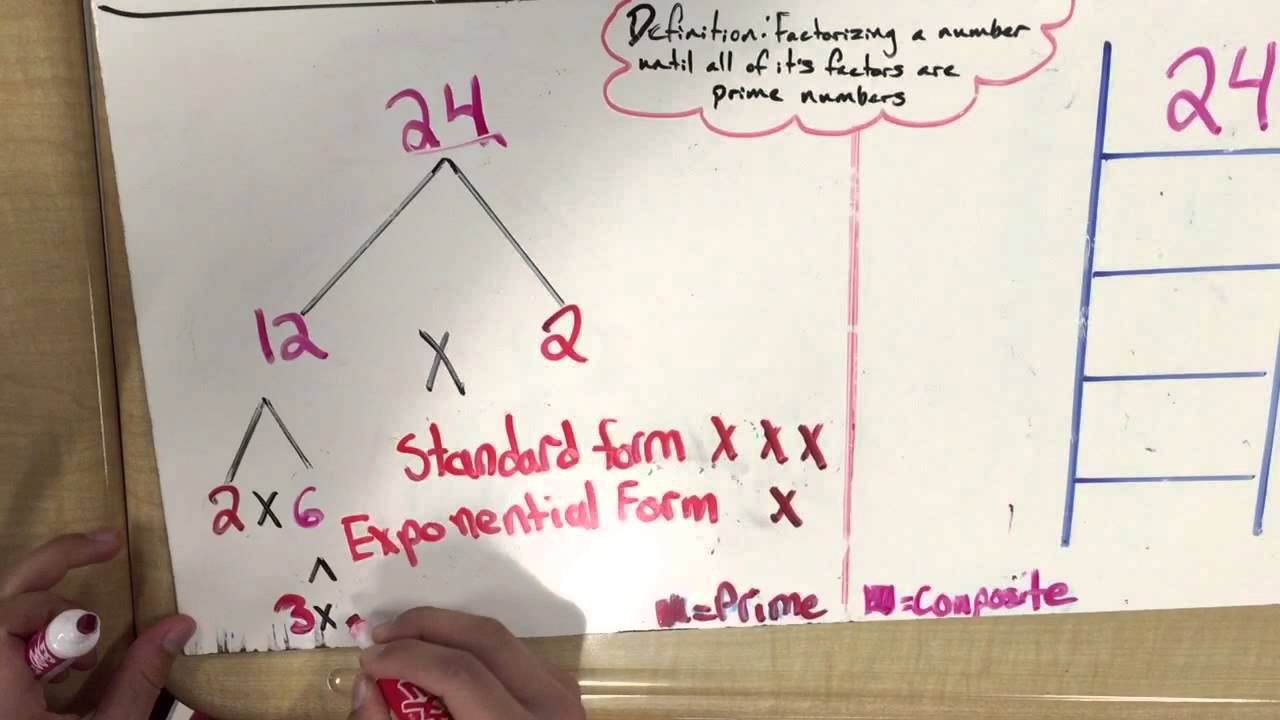 Definition: Factorizing a number
until all of it's factors are
prime numbers
24
12 X 2
2 X 6
3 x
Standard form X X X
Exponential Form X
=Prime
=Composite
24